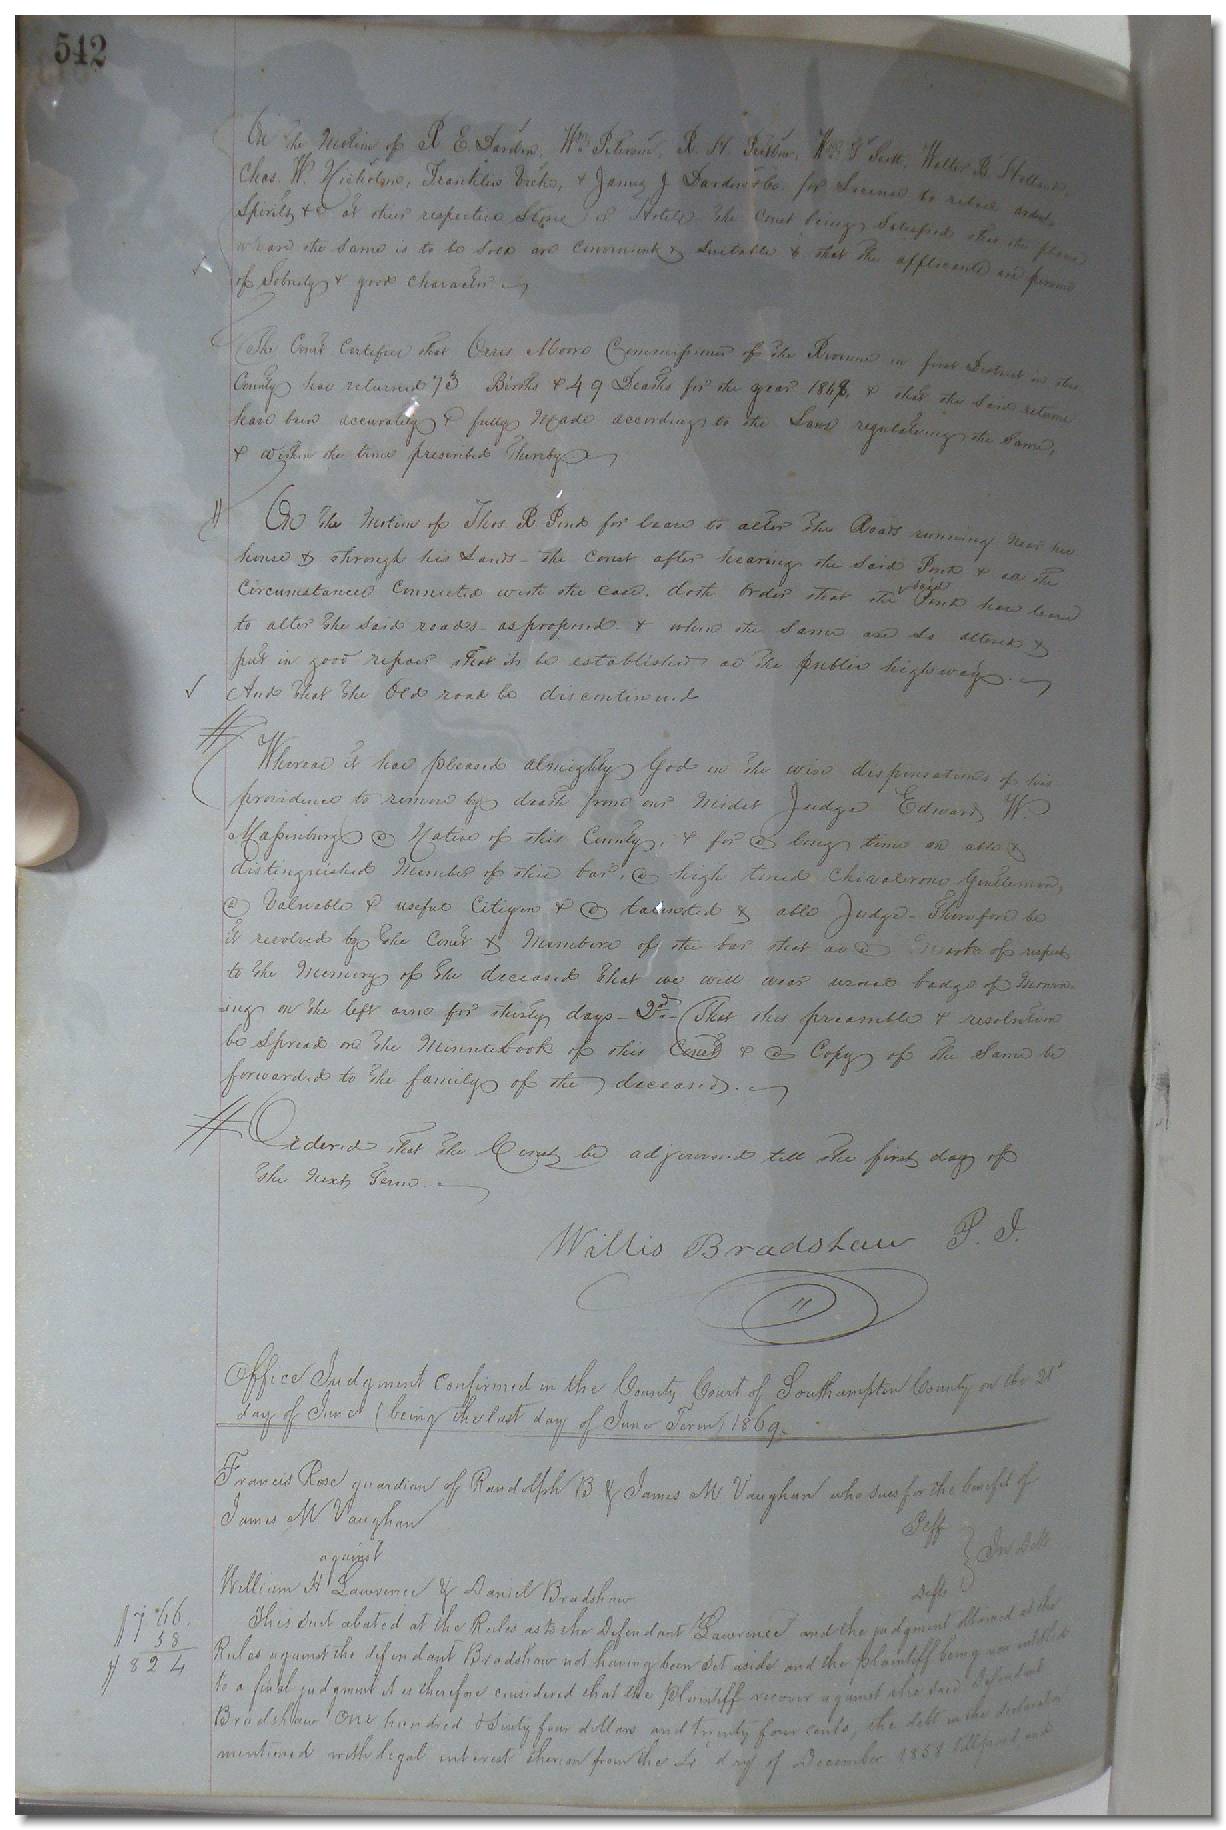 542
On the Motion of R E Darden, Wm Peterson, R. H. Pretlow, Wm G Scott, Walter B. Holland,
Chas. W. Nicholson, Franklin Vicks, & James J Darden & Co. for License to retail ardent
Spirits &c at their respective Store or Hotels. The Court being Satisfied that the place
where the same is to be Sold are convenient & Suitable & that the applicants are persons
of Sobriety & good character.
The Court Certifies that Orris Moore Commissioner of the Revenue in first District in this
County has returned 73 Births & 49 Deaths for the year 1868, & that the said returns
have been accurately & fully Made according to the Laws regulating the Same,
& within the time prescribed thereby
On the Motion of Thos. R Pond for leave to alter the Roads running near his
house & through his Lands - the Court after hearing the said Pond & all the
Circumstances Connected with the case, doth Order that the said Pond have leave
to alter the said roads as proposed & when the same are so altered &
put in good repair that it be established as the public highway.
And that the Old road be discontinued
Whereas it has pleased almighty God in the wise dispensations of his
providence to remove by death from our Midst Judge Edward W.
Massenburg a Native of this County, & for a long time an able &
distinguished Member of this bar, a high toned Chivalrous Gentleman,
a Valuable & useful Citizen & a talented & able Judge - Therefore be
it resolved by the Court & Members of the bar that as a Mark of respect
to the Memory of the deceased that we will wear usual badge of Mourn-
ing on the left arm for thirty days - 2d - That this preamble & resolution
be Spread on the Minute book of this Court & a Copy of the Same be
forwarded to the family of the deceased.
Ordered that the Court be adjourned till the first day of
the Next Term.
Willis Bradshaw P. J.
Office Judgment confirmed in the County Court of Southampton County on the 21st
day of June (being the last day of June Term) 1869.
Francis Rose guardian of Randolph B & James M Vaughan who sues for the benefit of
James M Vaughan Plff
against In Debt
William H Lawrence & Daniel Bradshaw Defts
This suit abated at the Rules as to the Defendant Lawrence and the judgment obtained at the
7.66
58
8 24
Rules against the defendant Bradshaw not having been set aside and the plaintiff being now entitled
to a final judgment it is therefore considered that the plaintiff recover against the said defendant
Bradshaw One hundred & Sixty four dollars and twenty four cents, the debt in the declaration
mentioned with legal interest thereon from the day of December 1858 till paid, and